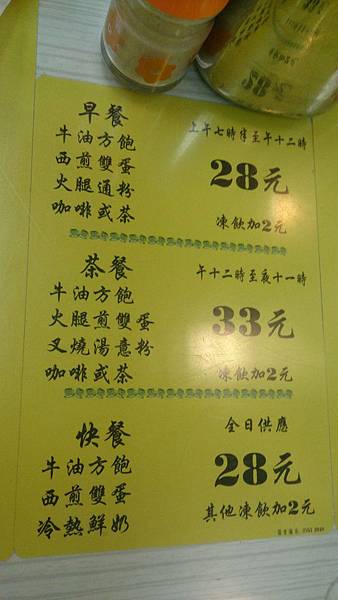 早餐
上午七時半至午十二時
牛油方飽
西煎雙蛋
火腿通粉
咖啡或茶
28元
凍飲加2元
茶餐
午十二時至夜十一時
牛油方飽
火腿煎雙蛋
叉燒湯意粉
咖啡或茶
33元
凍飲加2元
快餐
全日供應
牛油方飽
西煎雙蛋
冷熱鮮奶
28元
其他凍飲加2元